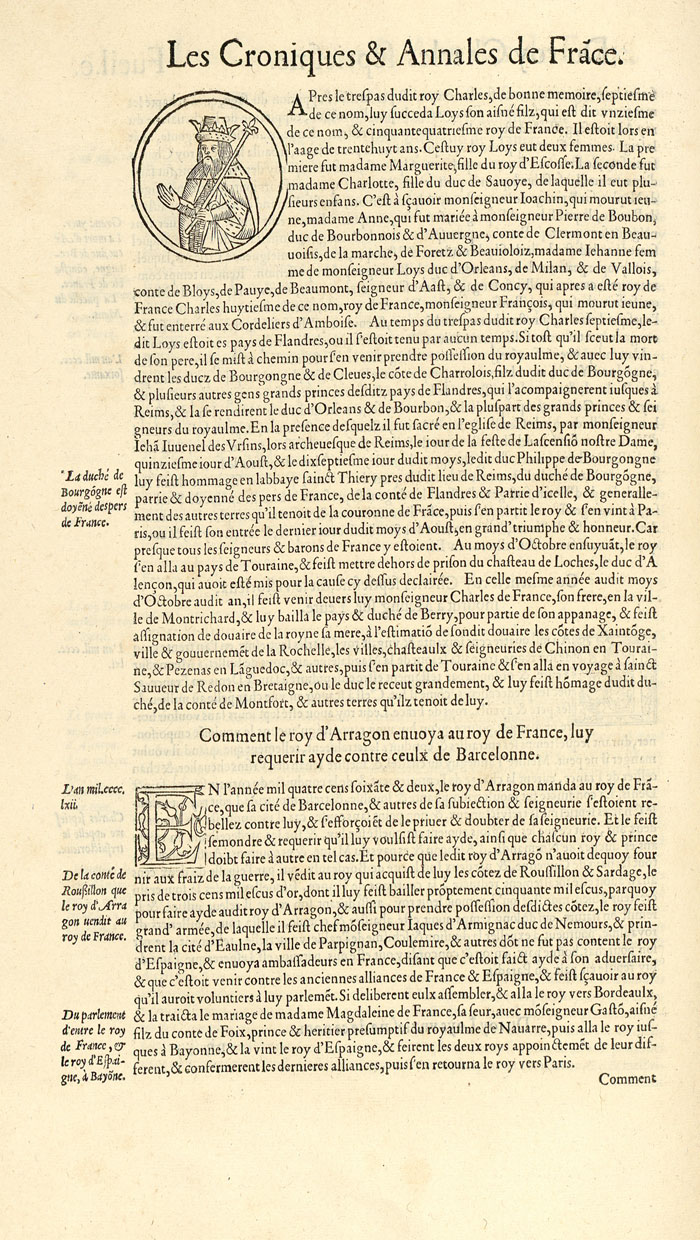 Les Croniques & Annales de Frãce.
APres le treſpas dudit roy Charles, de bonne memoire, ſeptieſme
de ce nom, luy ſucceda Loys ſon aiſné filz, qui eſt dit vnzieſme
de ce nom, & cinquantequatrieſme roy de France. Il eſtoit lors en
l'aage de trentehuyt ans. Ceſtuy roy Loys eut deux femmes. La pre
miere fut madame Marguerite, fille du roy d'Eſcoſſe. La ſeconde fut
madame Charlotte, fille du duc de Sauoye, de laquelle il eut plu-
ſieurs enfans. C'eſt à ſçauoir monſeigneur Ioachin, qui mourut ieu-
ne, madame Anne, qui fut mariée à monſeigneur Pierre de Boubon,
duc de Bourbonnois & d'Auuergne, conte de Clermont en Beau-
uoiſis, de la marche, de Foretz & Beauioloiz, madame Iehanne fem
me de monſeigneur Loys duc d'Orleans, de Milan, & de Vallois,
conte de Bloys, de Pauye, de Beaumont, ſeigneur d'Aaſt, & de Concy, qui apres a eſté roy de
France Charles huytieſme de ce nom, roy de France, monſeigneur François, qui mourut ieune,
& fut enterré aux Cordeliers d'Amboiſe. Au temps du treſpas dudit roy Charles ſeptieſme, le-
dit Loys eſtoit es pays de Flandres, ou il ſ'eſtoit tenu par aucun temps. Si toſt qu'il ſceut la mort
de ſon pere, il ſe miſt à chemin pour ſ'en venir prendre poſſeſſion du royaulme, & auec luy vin-
drent les ducz de Bourgongne & de Cleues, le côte de Charrolois, filz dudit duc de Bourgõgne,
& pluſieurs autres gens grands princes deſditz pays de Flandres, qui l'acompaignerent iuſques à
Reims, & la ſe rendirent le duc d'Orleans & de Bourbon, & la pluſpart des grands princes & ſei
gneurs du royaulme. En la preſence deſquelz il fut ſacré en l'egliſe de Reims, par monſeigneur
Iehã Iuuenel des Vrſins, lors archeueſque de Reims, le iour de la feſte de Laſcenſiõ noſtre Dame,
quinzieſme iour d'Aouſt, & le dixſeptieſme iour dudit moys, ledit duc Philippe de Bourgongne
luy feiſt hommage en labbaye ſainct Thiery pres dudit lieu de Reims, du duché de Bourgõgne,
parrie & doyenné des pers de France, de la conté de Flandres & Parrie d'icelle, & generalle-
ment des autres terres qu'il tenoit de la couronne de Frãce, puis ſ'en partit le roy & ſ'en vint à Pa-
ris, ou il feiſt ſon entrée le dernier iour dudit moys d'Aouſt, en grand' triumphe & honneur. Car
preſque tous les ſeigneurs & barons de France y eſtoient. Au moys d'Octobre enſuyuãt, le roy
ſ'en alla au pays de Touraine, & feiſt mettre dehors de priſon du chaſteau de Loches, le duc d'A
lençon, qui auoit eſté mis pour la cauſe cy deſſus declairée. En celle meſme année audit moys
d'Octobre audit an, il feiſt venir deuers luy monſeigneur Charles de France, ſon frere, en la vil-
le de Montrichard, & luy bailla le pays & duché de Berry, pour partie de ſon appanage, & feiſt
aſſignation de douaire de la royne ſa mere, à l'eſtimatiõ de ſondit douaire les côtes de Xaintõge,
ville & gouuernemẽt de la Rochelle, les villes, chaſteaulx & ſeigneuries de Chinon en Tourai-
ne, & Pezenas en Lãguedoc, & autres, puis ſ'en partit de Touraine & ſ'en alla en voyage à ſainct
Sauueur de Redon en Bretaigne, ou le duc le receut grandement, & luy feiſt hõmage dudit du-
ché, de la conté de Montfort, & autres terres qu'ilz tenoit de luy.
*La duché de
Bourgõgne eſt
doyẽné des pers
de France.
Comment le roy d'Arragon enuoya au roy de France, luy
requerir ayde contre ceulx de Barcelonne.
L'an mil.cccc.
lxii.
EN l'année mil quatre cens ſoixãte & deux, le roy d'Arragon manda au roy de Frã-
ce, que ſa cité de Barcelonne, & autres de ſa ſubiection & ſeigneurie ſ'eſtoient re-
bellez contre luy, & ſ'efforçoiẽt de le priuer & doubter de ſa ſeigneurie. Et le feiſt
ſemondre & requerir qu'il luy voulſiſt faire ayde, ainſi que chaſcun roy & prince
doibt faire à autre en tel cas. Et pource que ledit roy d'Arragõ n'auoit dequoy four
nir aux fraiz de la guerre, il vẽdit au roy qui acquiſt de luy les côtez de Rouſſillon & Sardage, le
pris de trois cens mil eſcus d'or, dont il luy feiſt bailler prõptement cinquante mil eſcus, parquoy
pour faire ayde audit roy d'Arragon, & auſſi pour prendre poſſeſſion deſdictes côtez, le roy feiſt
grand' armée, de laquelle il feiſt chef mõſeigneur Iaques d'Armignac duc de Nemours, & prin-
drent la cité d'Eaulne, la ville de Parpignan, Coulemire, & autres dõt ne fut pas content le roy
d'Eſpaigne, & enuoya ambaſſadeurs en France, diſant que c'eſtoit faict ayde à ſon aduerſaire,
& que c'eſtoit venir contre les anciennes alliances de France & Eſpaigne, & feiſt ſçauoir au roy
qu'il auroit voluntiers à luy parlemẽt. Si deliberent eulx aſſembler, & alla le roy vers Bordeaulx,
& la traicta le mariage de madame Magdaleine de France, ſa ſeur, auec mõſeigneur Gaſtõ, aiſné
filz du conte de Foix, prince & heritier preſumptif du royaulme de Nauarre, puis alla le roy iuſ-
ques à Bayonne, & la vint le roy d'Eſpaigne, & feirent les deux roys appoinctemẽt de leur diſ-
ferent, & confermerent les dernieres alliances, puis ſ'en retourna le roy vers Paris.
De la conté de
Rouſſillon que
le roy d'Arra
gon uendit au
roy de France.
Du parlement
d'entre le roy
de France, &
le roy d'Eſpai-
gne, à Bayõne.
Comment